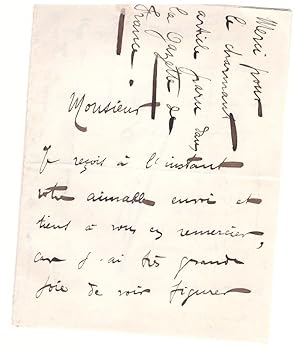 Merci pour
le charmant
article paru dans
la Gazette de
France.
Monsieur
Je reçois à l'instant
votre aimable envoi et
tiens à vous en remercier,
car j'ai très grande
joie de voir figurer